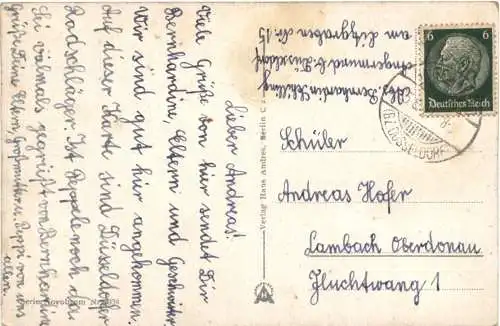 Lieber Andreas!
Viele Grüße von hier sendet Dir
Bernhardine, Eltern und Geschwister
Wir sind gut hier angekommen.
Auf dieser Karte sind Düsseldorfer
Radschläger. Ist Seppele noch da
Sei vielmals gegrüßt von Bernhardine
Grüße Deine Eltern, Großmutter u. Seppi von uns
allen.
Abs. Bernhardin Schilling
Angermund b. Düsseldorf
am Litzgraben Nr. 15
Verlag Hans Andres, Berlin C 2
6 6
Deutsches Reich
DÜSSELDORF
Schüler
Andreas Hofer
Lambach Oberdonau
Fluchtwang 1